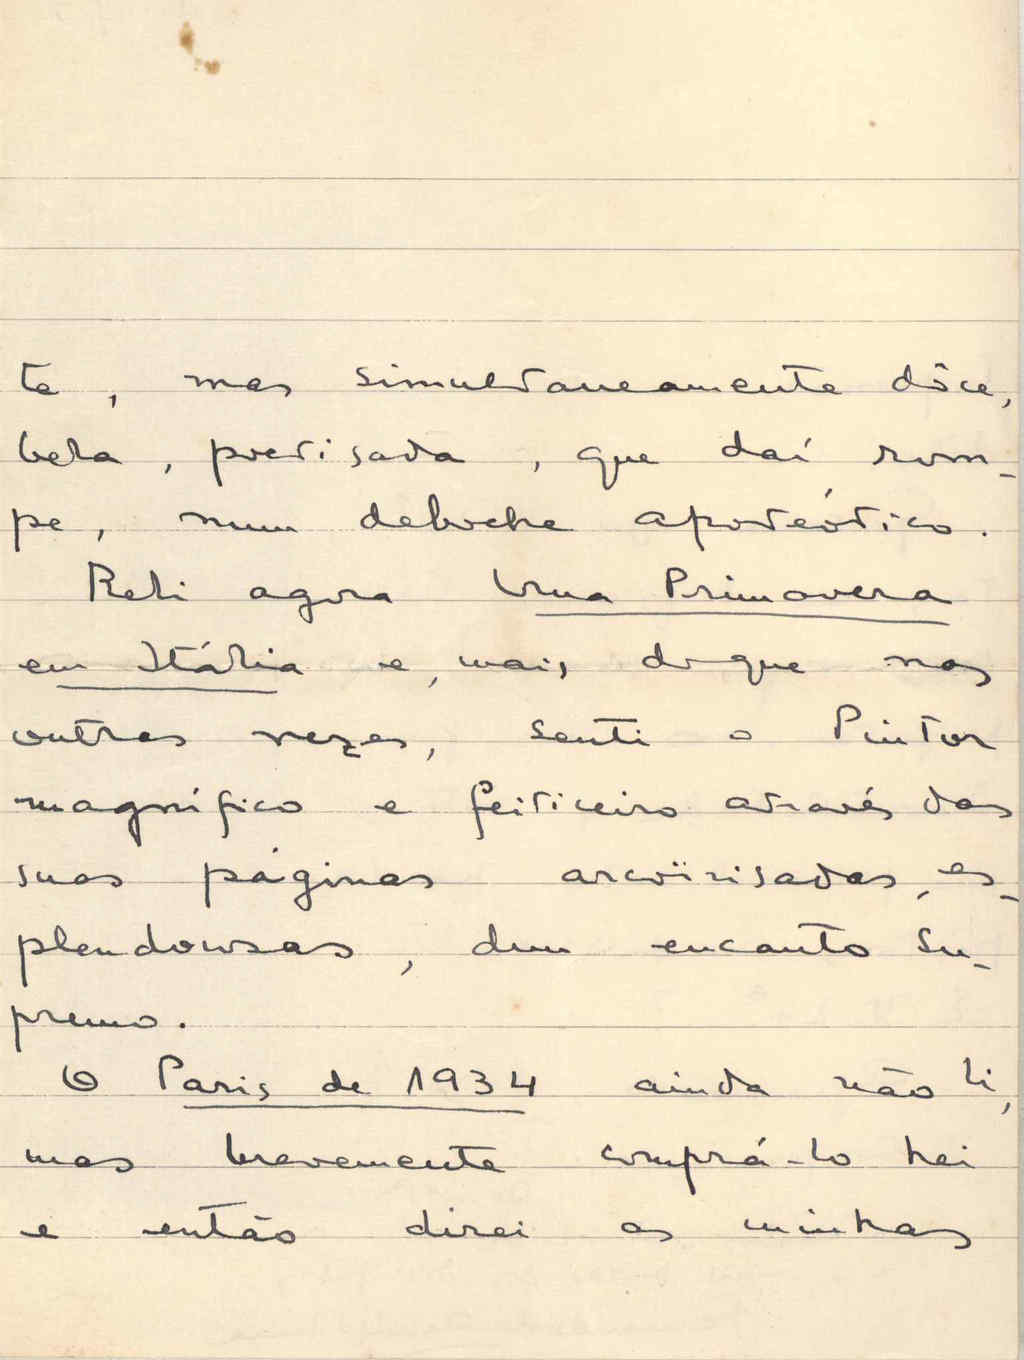 te, mas simultaneamente dôce,
bela, poetisada, que daí rom-
pe, num deboche apoteótico.
Reli agora Uma Primavera
em Itália e, mais do que nas
outras vezes, senti o Pintor
magnífico e feiticeiro através das
suas páginas arcoïrisadas, es-
plendorosas, dum encanto su-
premo.
O Paris de 1934 ainda não li,
mas brevemente comprá-lo hei
e então direi as minhas